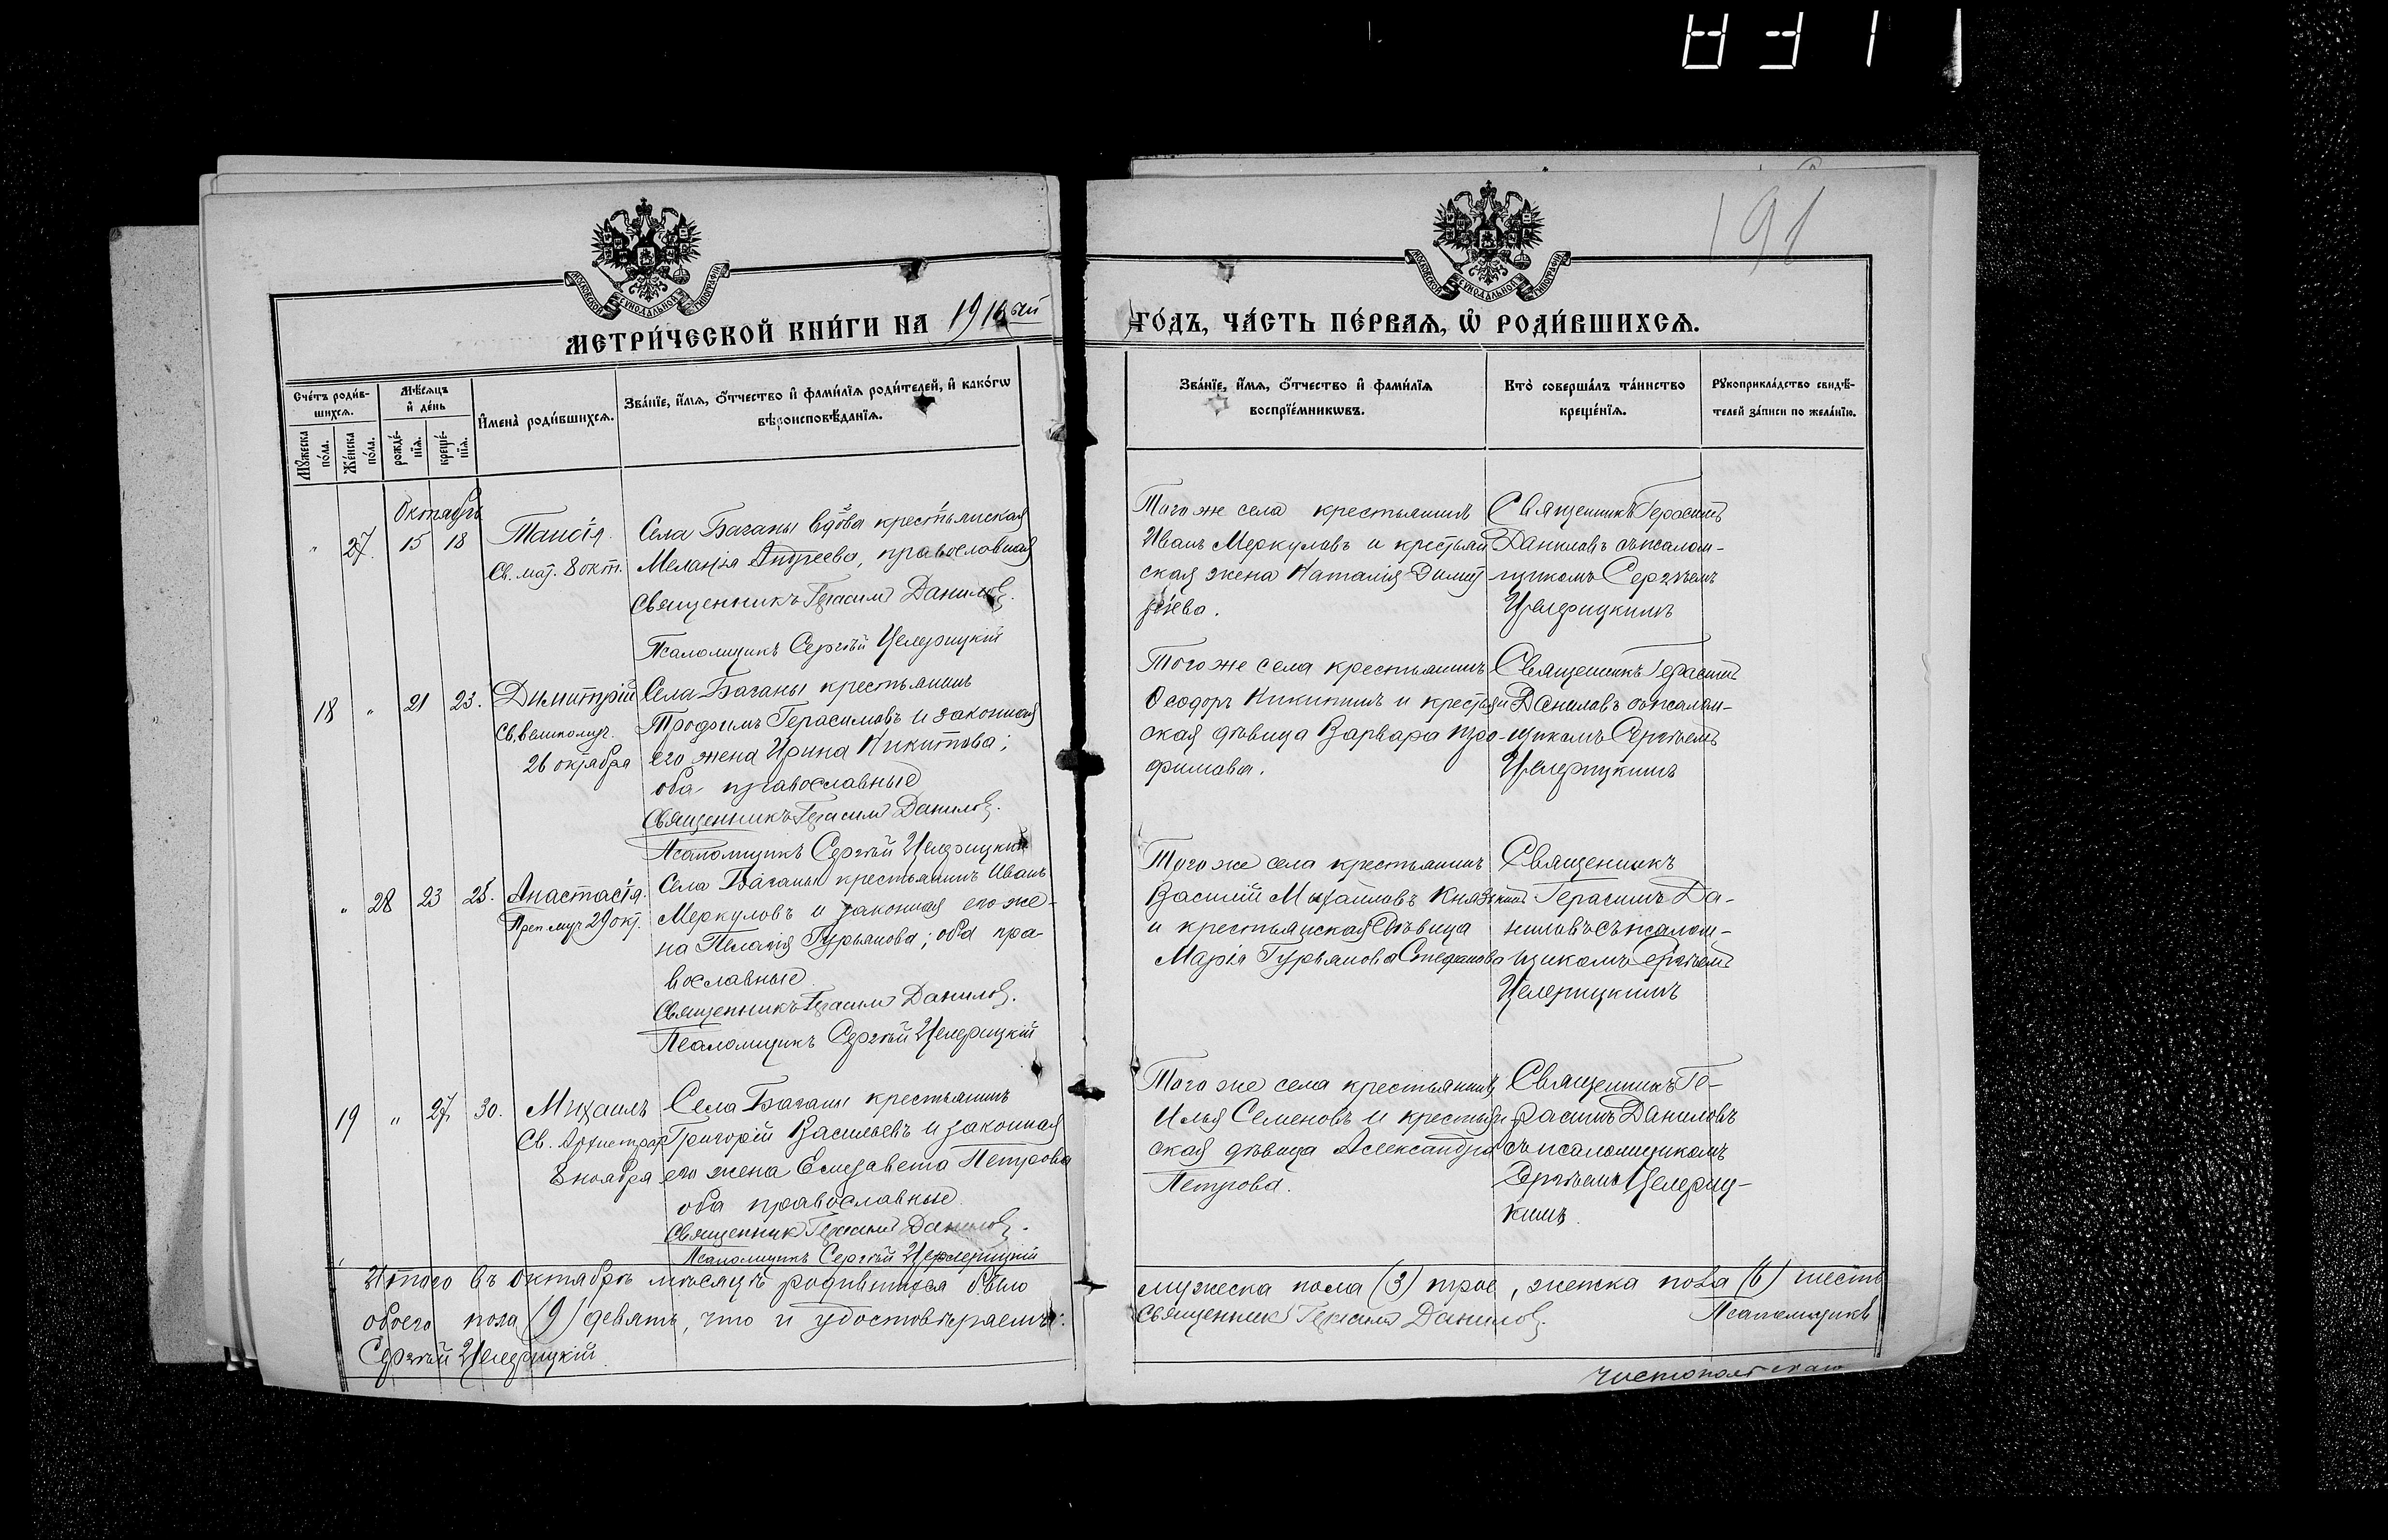 191
МЕТРИ́ЧЕСКОЙ КНИ́ГИ НА 1910ый
ГО́ДЪ, ЧА́СТЬ ПЕ́РВАѦ, Ѿ РОДИ́ВШИХСѦ.
Сче́тъ роди́в-
шихсѧ.
Мѣ́сѧцъ
и҆ де́нь
И҆мена̀ роди́вшихсѧ.
Зва́нїе, и҆́мѧ, ѻ҆́тчество и҆ фами́лїѧ роди́телей, и҆ како́гѡ
вѣроисповѣ́данїѧ.
Мꙋ́жеска
по́ла.
Же́нска
по́ла.
рожде́-
нїѧ.
креще́-
нїѧ.
Зва́нїе, и҆́мѧ, ѻ҆́тчество и҆ фами́лїѧ
воспрїе́мникѡвъ.
Кто̀ соверша́лъ та́инство
креще́нїѧ.
Рꙋкоприкла́дство свидѣ́-
телей за́писи по жела́нїю.
Октябрь
" 27. 15 18 Таисія.
Св. мат. 8 окт.
Села Баганы вдова крестьянская
Меланія Андреева, православная
Священникъ Герасимъ Даниловъ.
Псаломщикъ Сергѣй Целерицкій
Того же села крестьянинъ
Иванъ Меркуловъ и крестьян
ская жена Наталія Димит
ріева.
Священникъ Герасимъ
Даниловъ съ псалом-
щикомъ Сергѣемъ
Целерицкимъ
18 " 21 23. Димитрій
Св. великомуч.
26 октября
Села Баганы крестьянинъ
Трофимъ Герасимовъ и законная
его жена Ирина Никитова;
оба православные
Священникъ Герасимъ Даниловъ.
Псаломщикъ Сергѣй Целерицкій
Того же села крестьянинъ
Ѳеодоръ Никитинъ и крестьян
ская дѣвица Варвара Тро-
фимова.
Священникъ Герасимъ
Даниловъ съ псалом-
щикомъ Сергѣемъ
Целерицкимъ
" 28 23 25. Анастасія.
Преп. муч. 29 окт.
Села Баганы крестьянинъ Иванъ
Меркуловъ и законная его же-
на Пелагія Гурьянова; оба пра-
вославные
Священникъ Герасимъ Даниловъ.
Псаломщикъ Сергѣй Целерицкій
Того же села крестьянинъ
Василій Михайловъ Князькинъ
и крестьянская дѣвица
Марія Гурьянова Стефанова
Священникъ
Герасимъ Да-
ниловъ съ псалом-
щикомъ Сергѣемъ
Целерицкимъ
19 " 27 30. Михаилъ
Св. Архистрат
8 ноября
Села Баганы крестьянинъ
Григорій Васильевъ и законная
его жена Елизавета Петрова
оба православные.
Священникъ Герасимъ Даниловъ.
Псаломщикъ Сергѣй Целерицкій
Того же села крестьянинъ
Илья Семеновъ и крестьян
ская дѣвица Александра
Петрова.
Священникъ Ге-
расимъ Даниловъ
съ псаломщикомъ
Сергѣемъ Целериц-
кимъ.
Итого въ октябрѣ мѣсяцѣ родившихся было
обоего пола (9) девять, что и удостовѣряемъ:
Сергѣй Целерицкій
мужеска пола (3) трое, женска пола (6) шесть
Священникъ Герасимъ Даниловъ. Псаломщикъ
Чистопольскаго